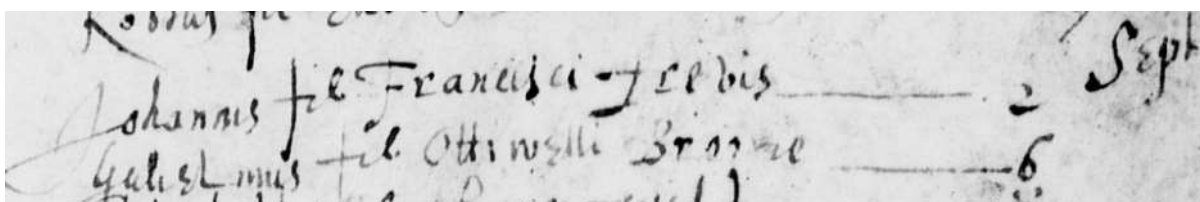 Johannes fil Francisci Trevis 2 Sept
Gulielmus fil Ottiwelli Broome 6